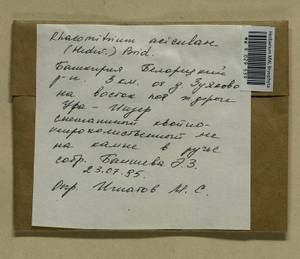 Rhacomitrium aciculare
(Hedw.) Brid.
Башкирия Белорецкий
р-н. 3 км. от д. Зуяково
на восток под ж дороги
Уфа - Инзер
смешанный хвойно-
широколиственный лес
на камне в ручье
собр. Баишева Э.З.
23.07.95.
Опр. Игнатов М.С.